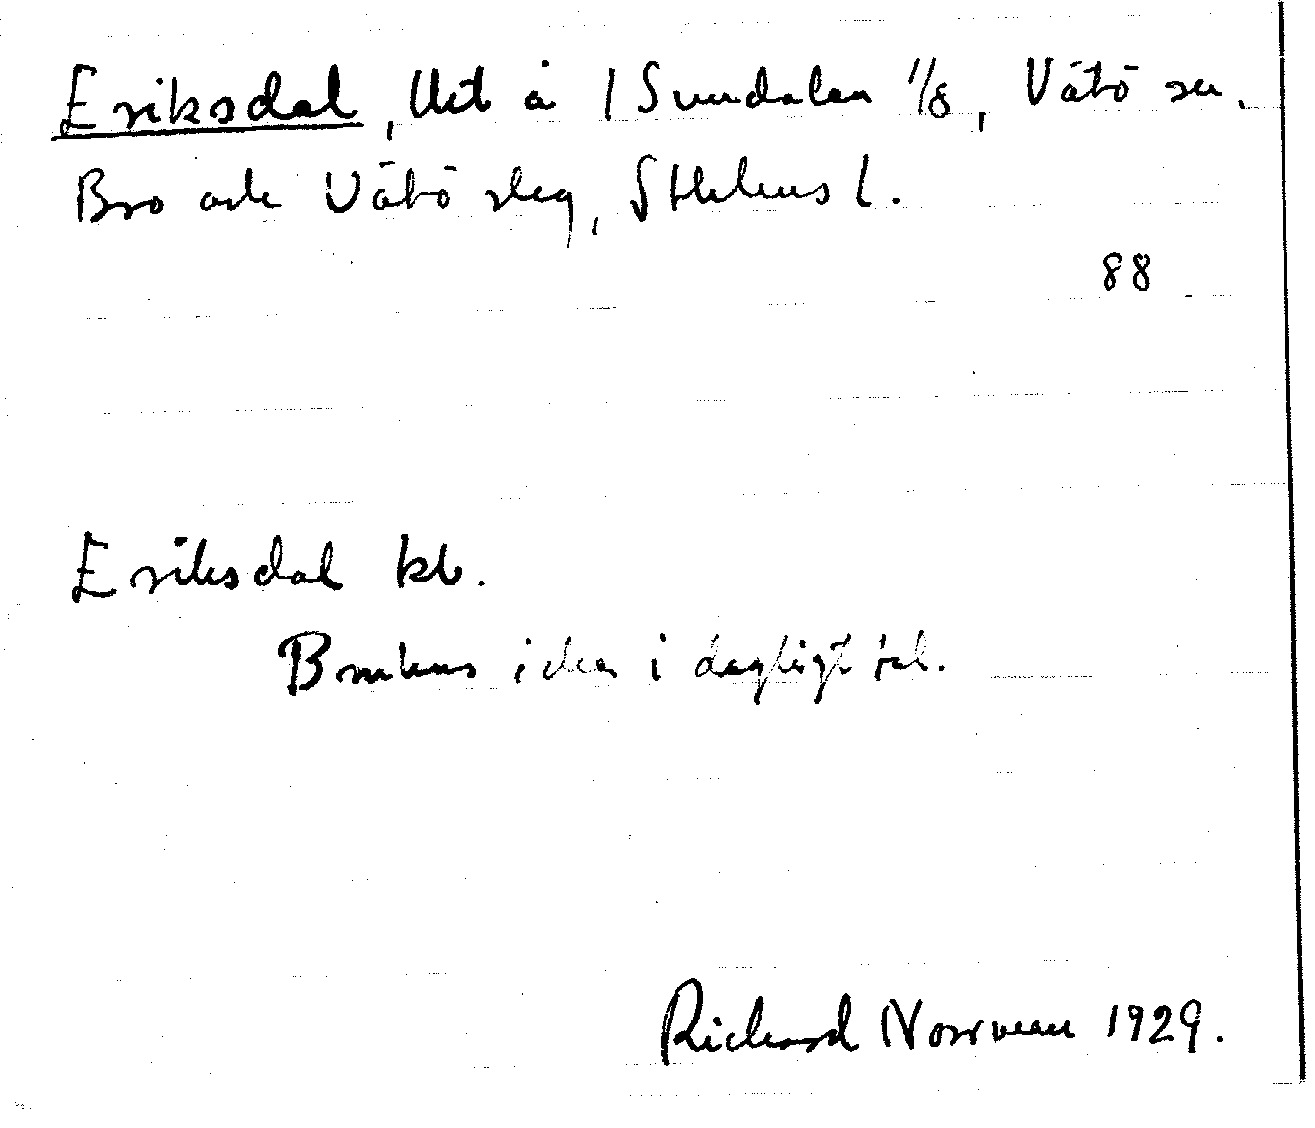 Eriksdal, Utt å 1 Sundalen 1/8, Vätö sn.
Bro och Vätö skg, Sthlms l.
88
Eriksdal kb.
Brukas icke i dagligt tal.
Richard Norrman 1929.